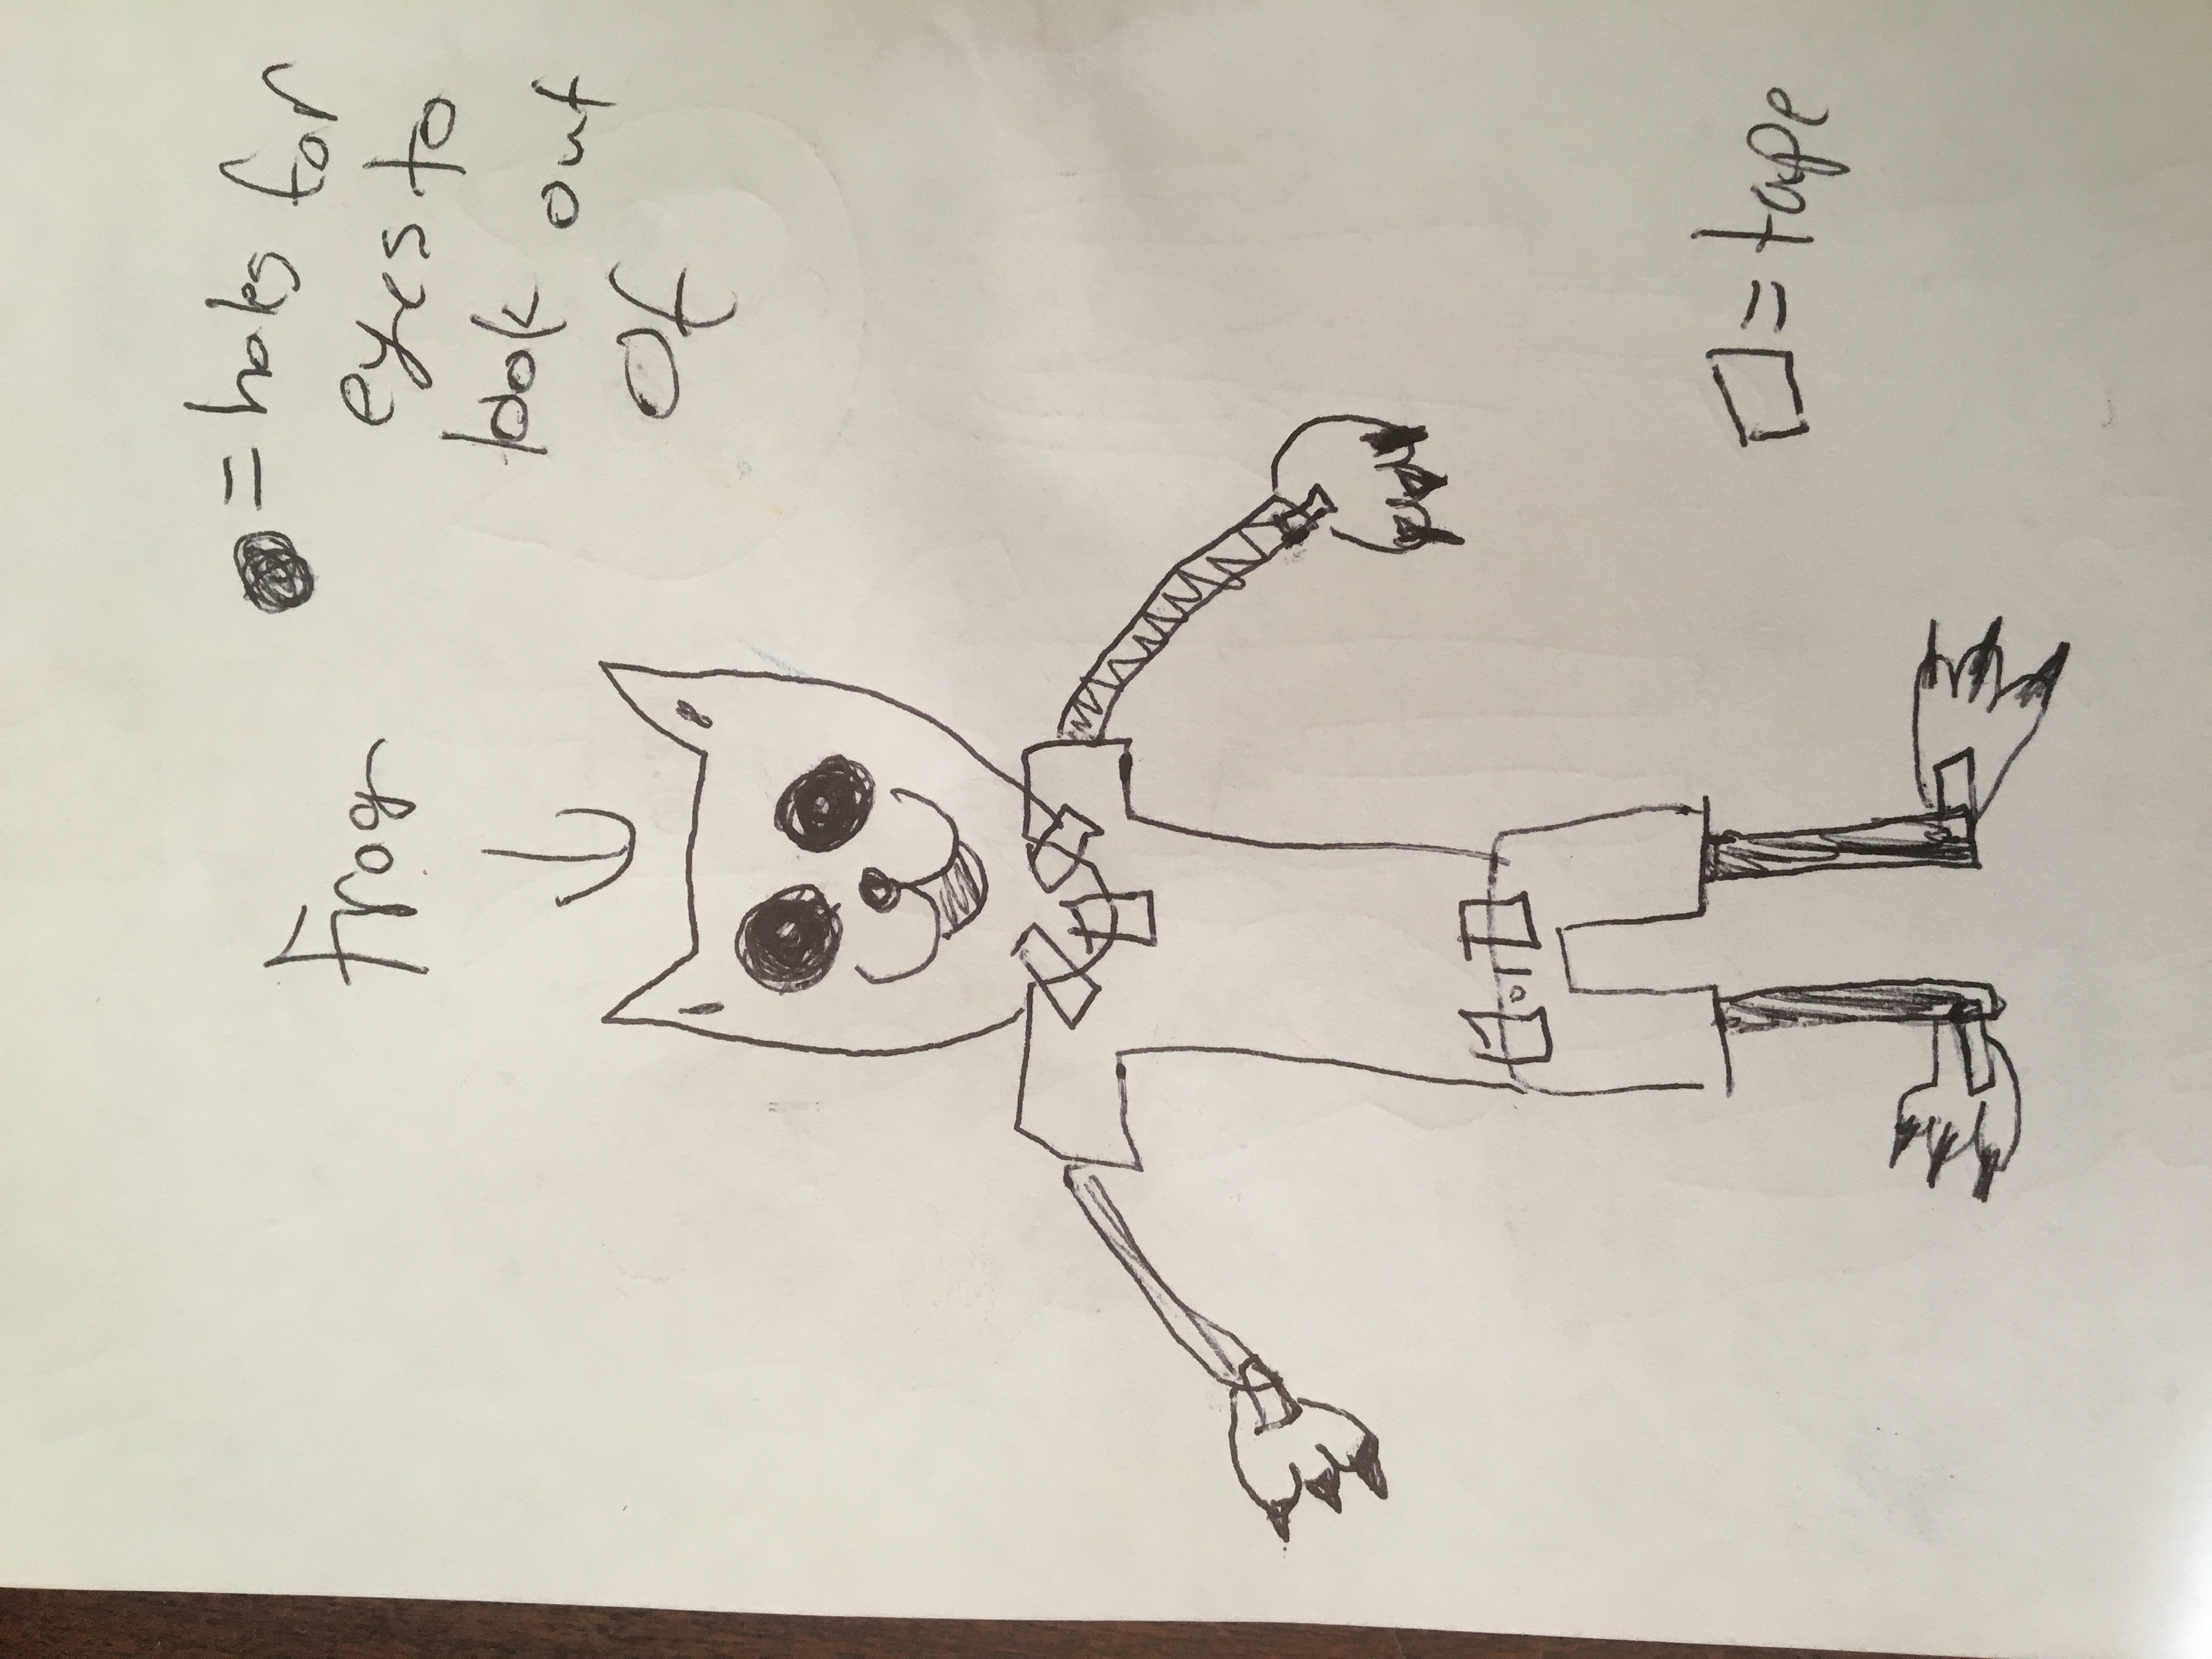 Frog
= holes for
eyes to
look out
of
= tape